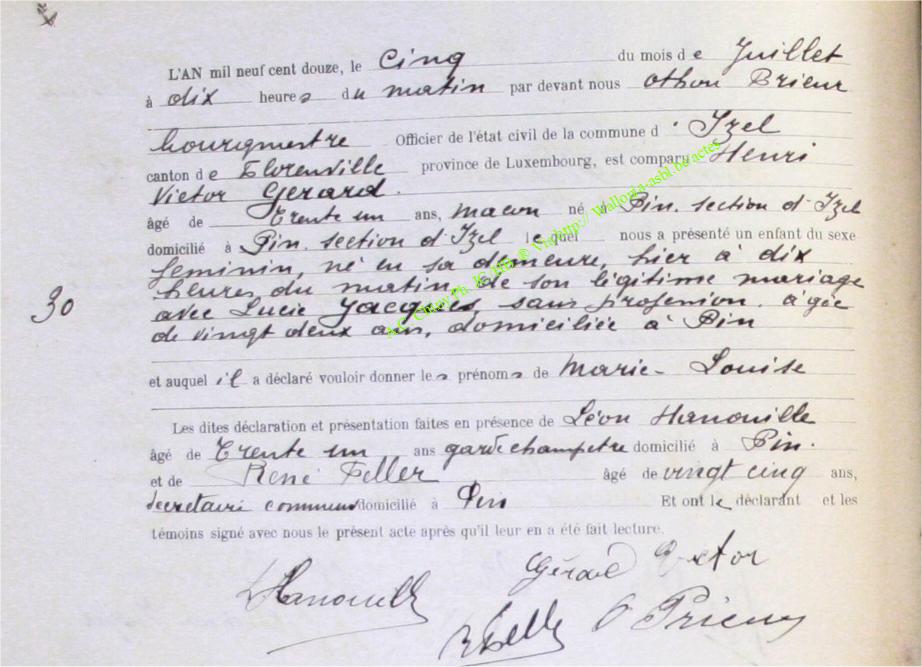 L'AN mil neuf cent douze, le Cinq du mois de Juillet
à dix heures du matin par devant nous Othon Prieur
bourgmestre Officier de l'état civil de la commune d'Izel
canton de Florenville province de Luxembourg, est comparu Henri
Victor Gérard.
âgé de Trente un ans, macon né à Pin. section d'Izel
domicilié à Pin. section d'Izel lequel nous a présenté un enfant du sexe
feminin, né en sa demeure, hier à dix
heures du matin, de son légitime mariage
30 avec Lucie Jacques, sans profession. agée
de vingt deux ans, domiciliée à Pin
et auquel il a déclaré vouloir donner les prénoms de Marie-Louise
Les dites déclaration et présentation faites en présence de Léon Hanouille
âgé de Trente un ans garde champetre domicilié à Pin.
et de René Feller âgé de vingt cinq ans,
secretaire communal domicilié à Pin Et ont le déclarant et les
témoins signé avec nous le présent acte après qu'il leur en a été fait lecture.
Gérard Victor
LHanouille
RFeller O Prieur